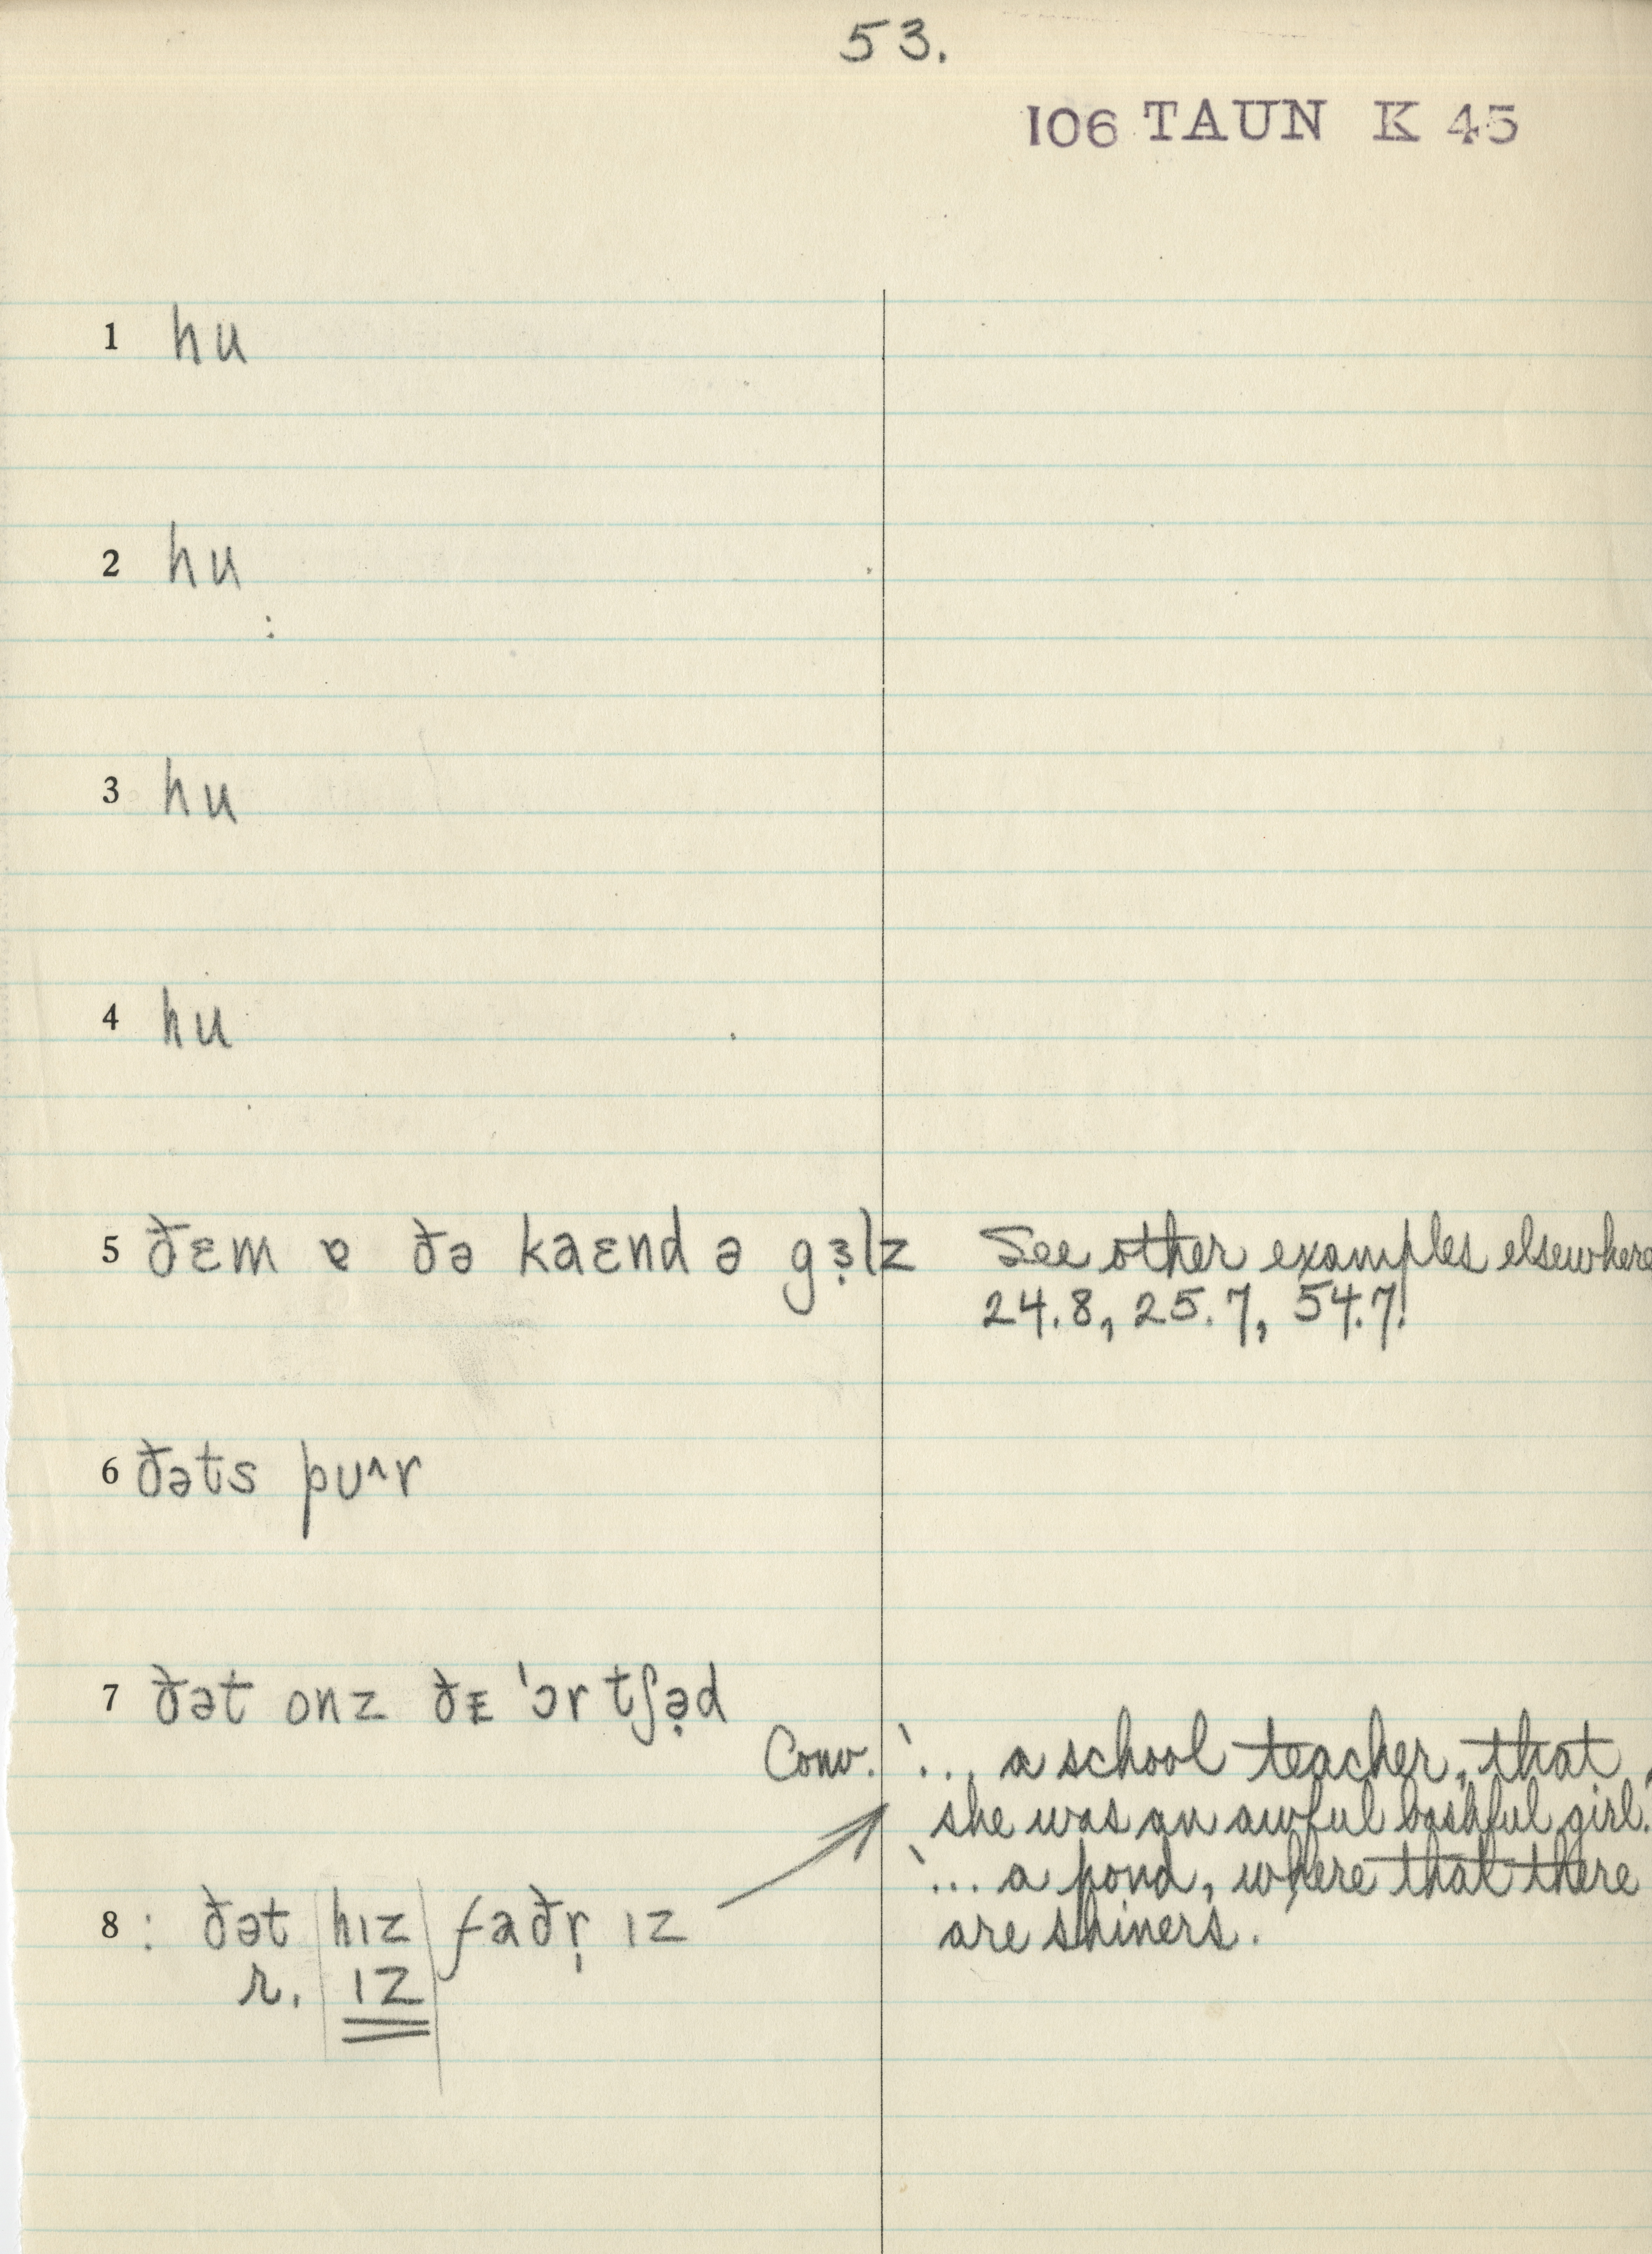 53.
106 TAUN K 45
1 hu
2 hu
3 hu
4 hu
5 ðɛm ɐ ðə kaɛnd ə gɜ̣lz See other examples elsewhere
24.8, 25.7, 54.7.
6 ðəts pu^r
7 ðət onz ðᴇ 'ɔrtʃə̣d
Conv. '... a school teacher, that
she was an awful bashful girl.
'... a pond, where that there
are shiners.
8 : ðət hɪz faðr̩ ɪz
r. ɪz